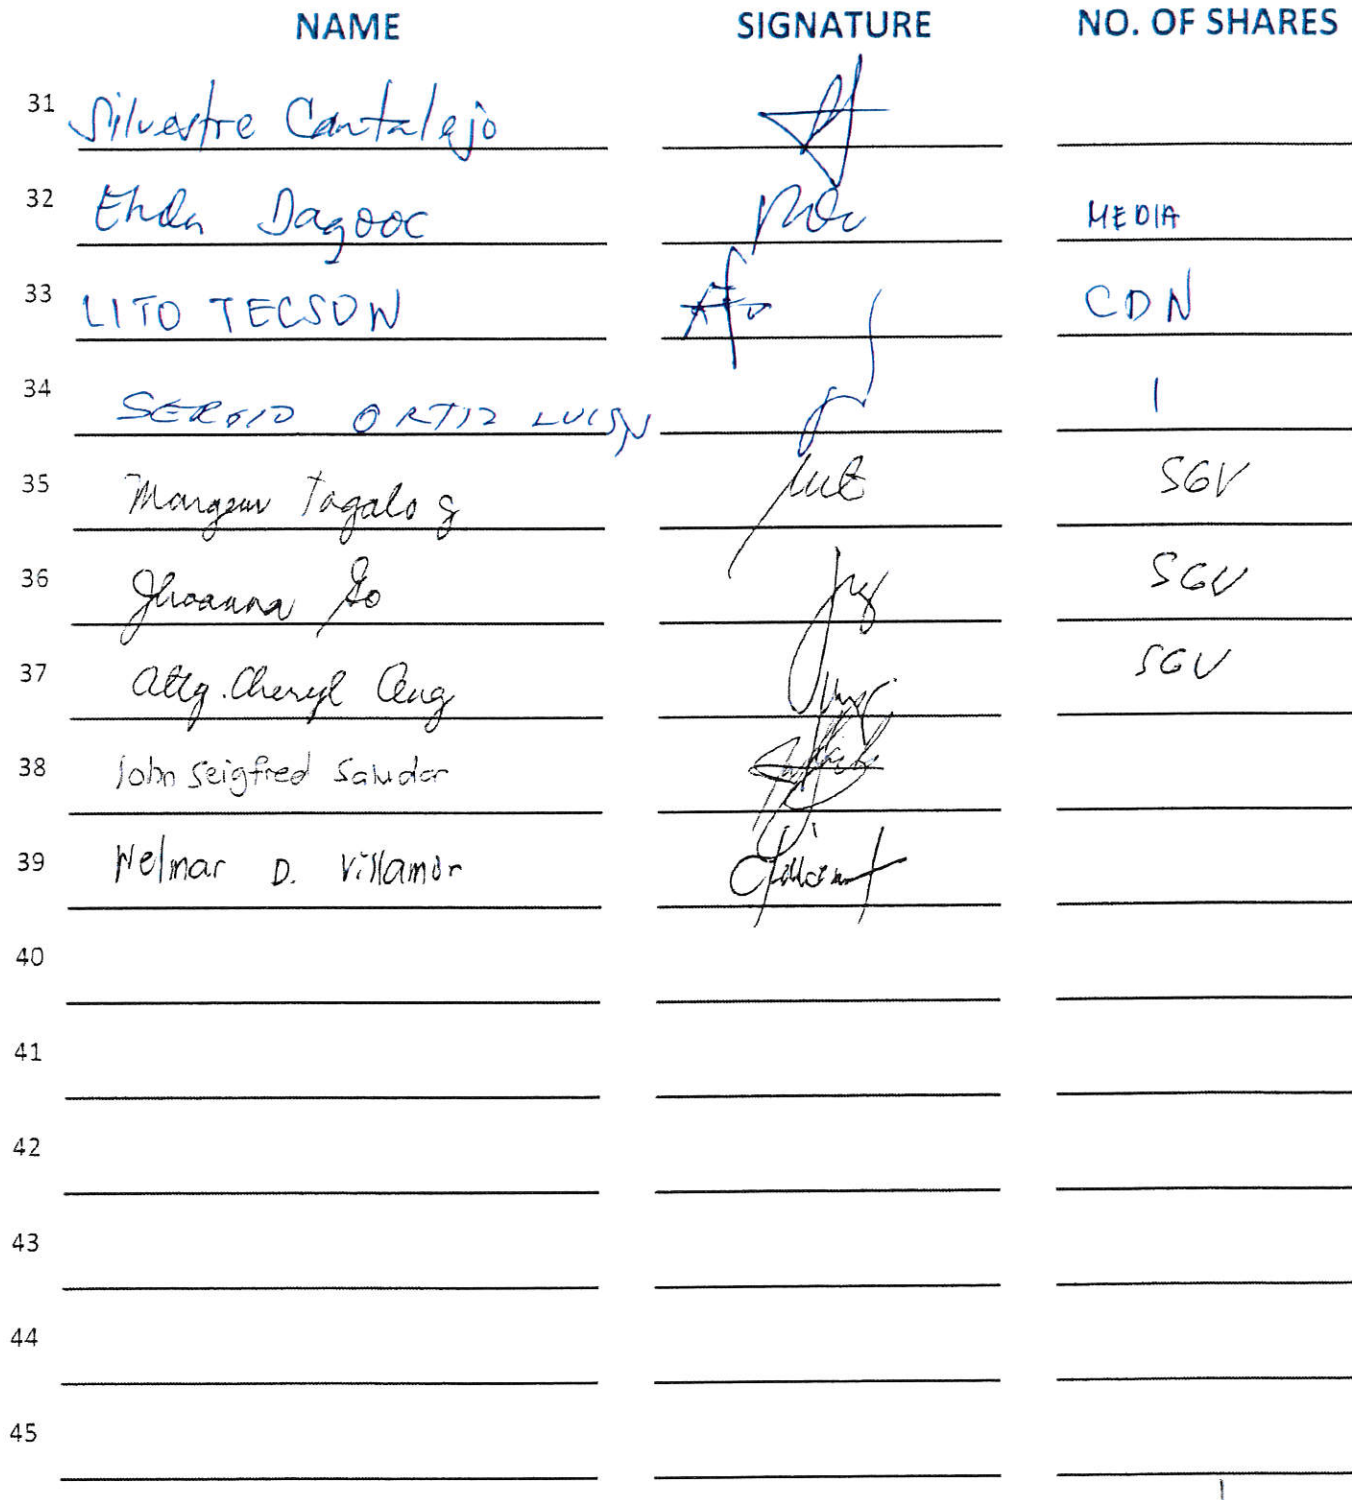 NAME SIGNATURE NO. OF SHARES
31 Silvestre Cantalejo
32 Ehda Dagooc MEDIA
33 LITO TECSON CDN
34 SERGIO ORTIZ LUIS JR 1
35 Tagalog SGV
36 Jhoanna Go SGV
37 Atty. Cheryl Ang SGV
38 John Seigfred Saludar
39 Welmar D. Villamor
40
41
42
43
44
45